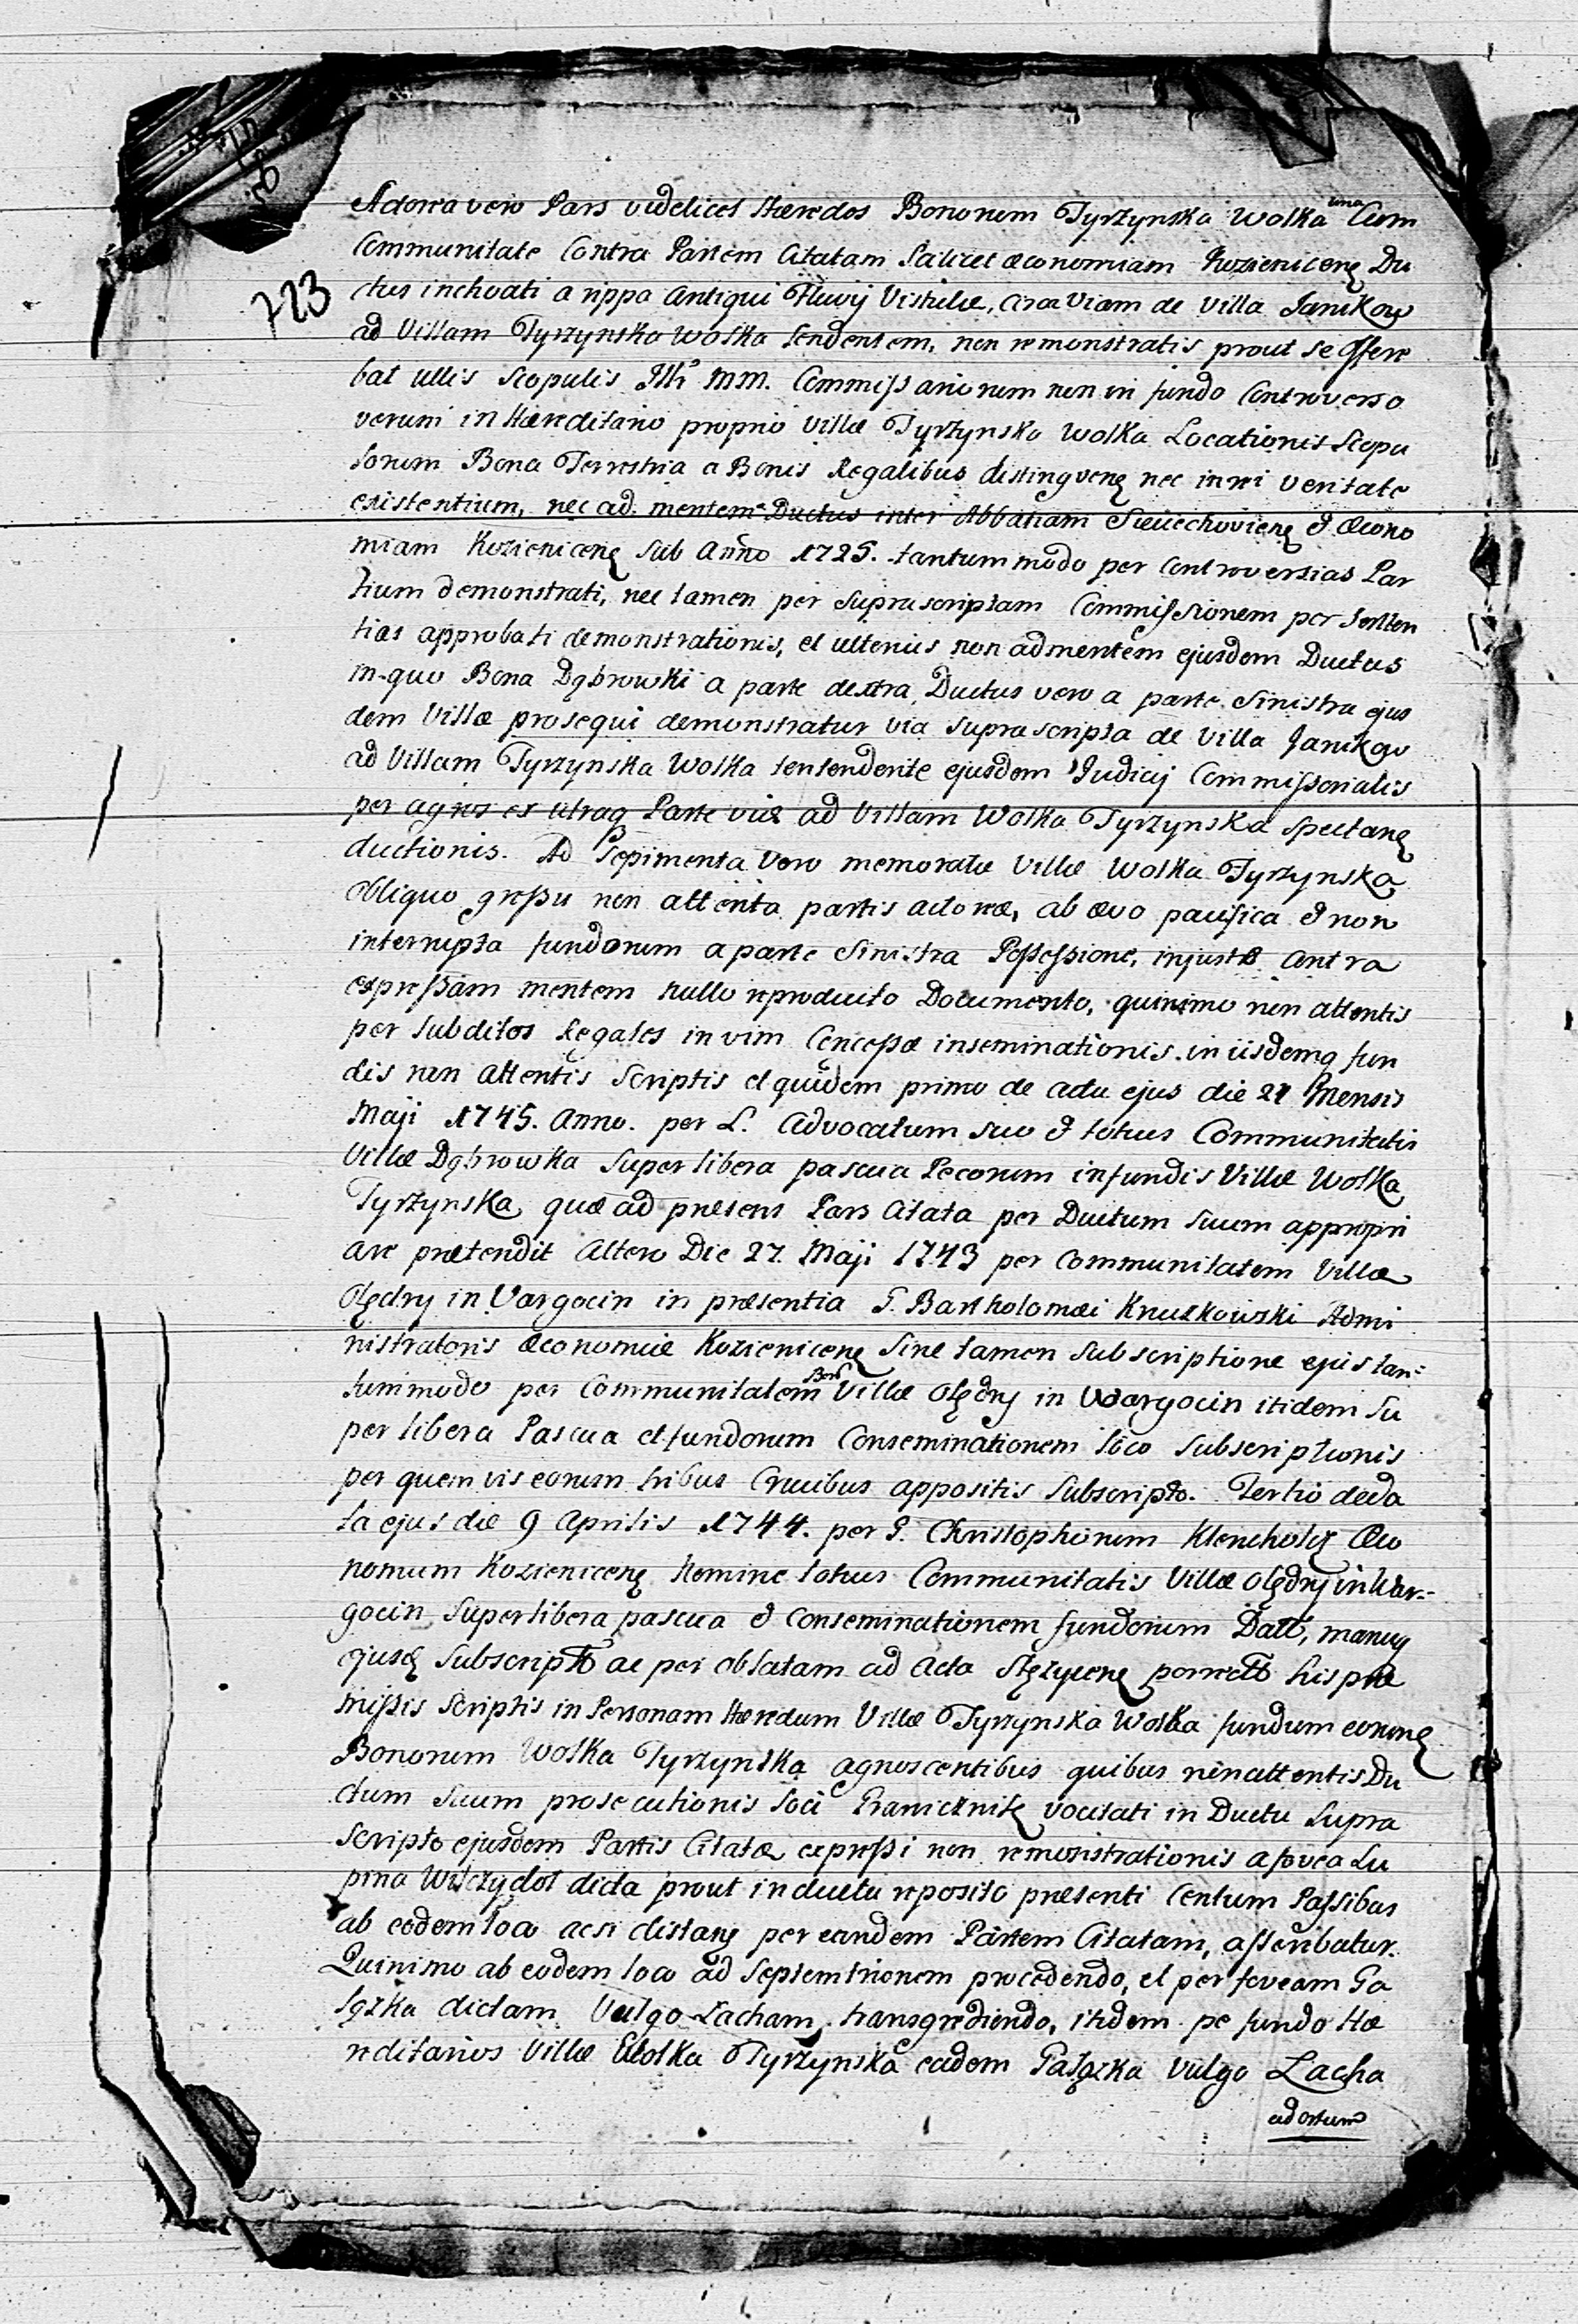 Actorea vero Pars videlicet Hæredes Bonorum Tyrzynska Wolka una Cum
Communitate Contra Partem Citatam Scilicet œconomiam Kozienicenę Du
723
ctus inchoati a rippa antiqui Fluvij Vistulæ, circa Viam de Villa Janikow
ad Villam Tyrzynska Wolka tendentem, non remonstratis prout se offere
bat ullis Scopulis Illr MM. Commissariorum non in fundo Controverso
verum in Hæreditario proprio Villæ Tyrzynska Wolka Locationis Scopu
lorum Bona Terrestria a Bonis Regalibus distingvenę nec in rei veritate
existentium, nec ad mentem Ductus inter Abbatiam Sieciechovienę et Œcono
miam Kozienicenę sub Anno 1725. tantummodo per Controversias Par
tium demonstrati, nec tamen per suprascriptam Commissionem per Senten
tias approbati demonstrationis, et ulterius non ad mentem ejusdem Ductus
in quo Bona Dąbrowki a parte dextra, Ductus vero a parte Sinistra ejus
dem Villæ prosequi demonstratur via suprascripta de Villa Janikow
ad Villam Tyrzynska Wolka tentendente ejusdem Judicij Commissorialis
per agros ex utraq Parte viæ ad Villam Wolka Tyrzynska spectanę
ductionis. Ad Sepimenta vero memoratæ Villæ Wolka Tyrzynska
obliquo gressu non attenta partis actoreæ, ab ævo pacifica et non
interrupta fundorum a parte Sinistra Possessione, injuste Contra
expressam mentem nullo reproducto Documento, quinimo non attentis
per subditos Regales in vim Concessæ inseminationis in iisdemq fun
dis non attentis Scriptis et quidem primo de actu ejus die 21 Mensis
Maji 1745. Anno. per L. Advocatum suo et totius Communitatis
Villæ Dąbrowka super libera pascua Pecorum in fundis Villæ Wolka
Tyrzynska, quæ ad præsens Pars Citata per Ductum suum appropri
are prætendit Altero Die 27. Maji 1743 per Communitatem Villæ
Olędry in Vargocin in præsentia G. Bartholomæi Kruszkowski Admi
nistratoris œconomiæ Kozienicenę Sine tamen subscriptione ejus tan=
tummodo per Communitatem Villæ Olędry in Wargocin itidem Su
per libera Pascua et fundorum Conseminationem loco Subscriptionis
per quemvis eorum tribus Crucibus appositis Subscripto. Tertio de da
ta ejus die 9 Aprilis 1744. per G. Christophorum Klencholz Œco
nomum Kozienicenę Nomine totius Communitatis Villæ Olędry in War=
gocin super libera pascua et Conseminationem fundorum Datt, manuq
ejusę Subscriptt ac per oblatam ad Acta Stężycenę porrectt his præ
missis Scriptis in Personam Hæredum Villæ Tyrzynska Wolka fundum eorumę
Bonorum Wolka Tyrzynska agnoscentibus quibus non attentis Du
ctum suum prosecutionis loci Granicznik vocitati in Ductu Supra
scripto ejusdem Partis Citatæ expressi non remonstrationis a fovea Lu
pina Wilczydoł dicta prout in ductu reposito præsenti Centum Passibus
ab eodem loco acsi distanę per eandem Partem Citatam, asseribatur.
Quinimo ab eodem loco ad Septemtrionem procedendo, et per foveam Ga
łęzka dictam Vulgo Łacham transgrediendo, itidem pe fundo Hæ
reditarios Villæ Wolka Tyrzynska eadem Gałęzka Vulgo Łacha
ad ortum